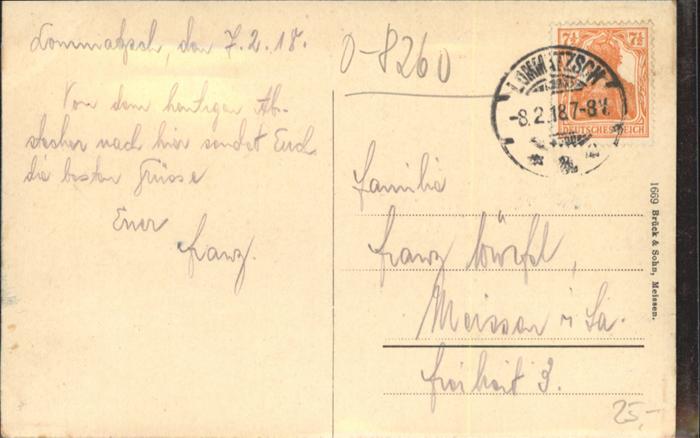 Lommatzsch, den 7.2.18.
Von dem heutigen Ab-
stecher nach hier sendet Euch
die besten Grüsse
Euer
Franz.
0-8260
7½ 7½
DEUTSCHES REICH
LOMMATZSCH
-8.2.18.7-8V.
Familie
Franz Würfel,
Meissen i. Sa.
Freiheit 3.
1669 Brück & Sohn, Meissen.
25,-